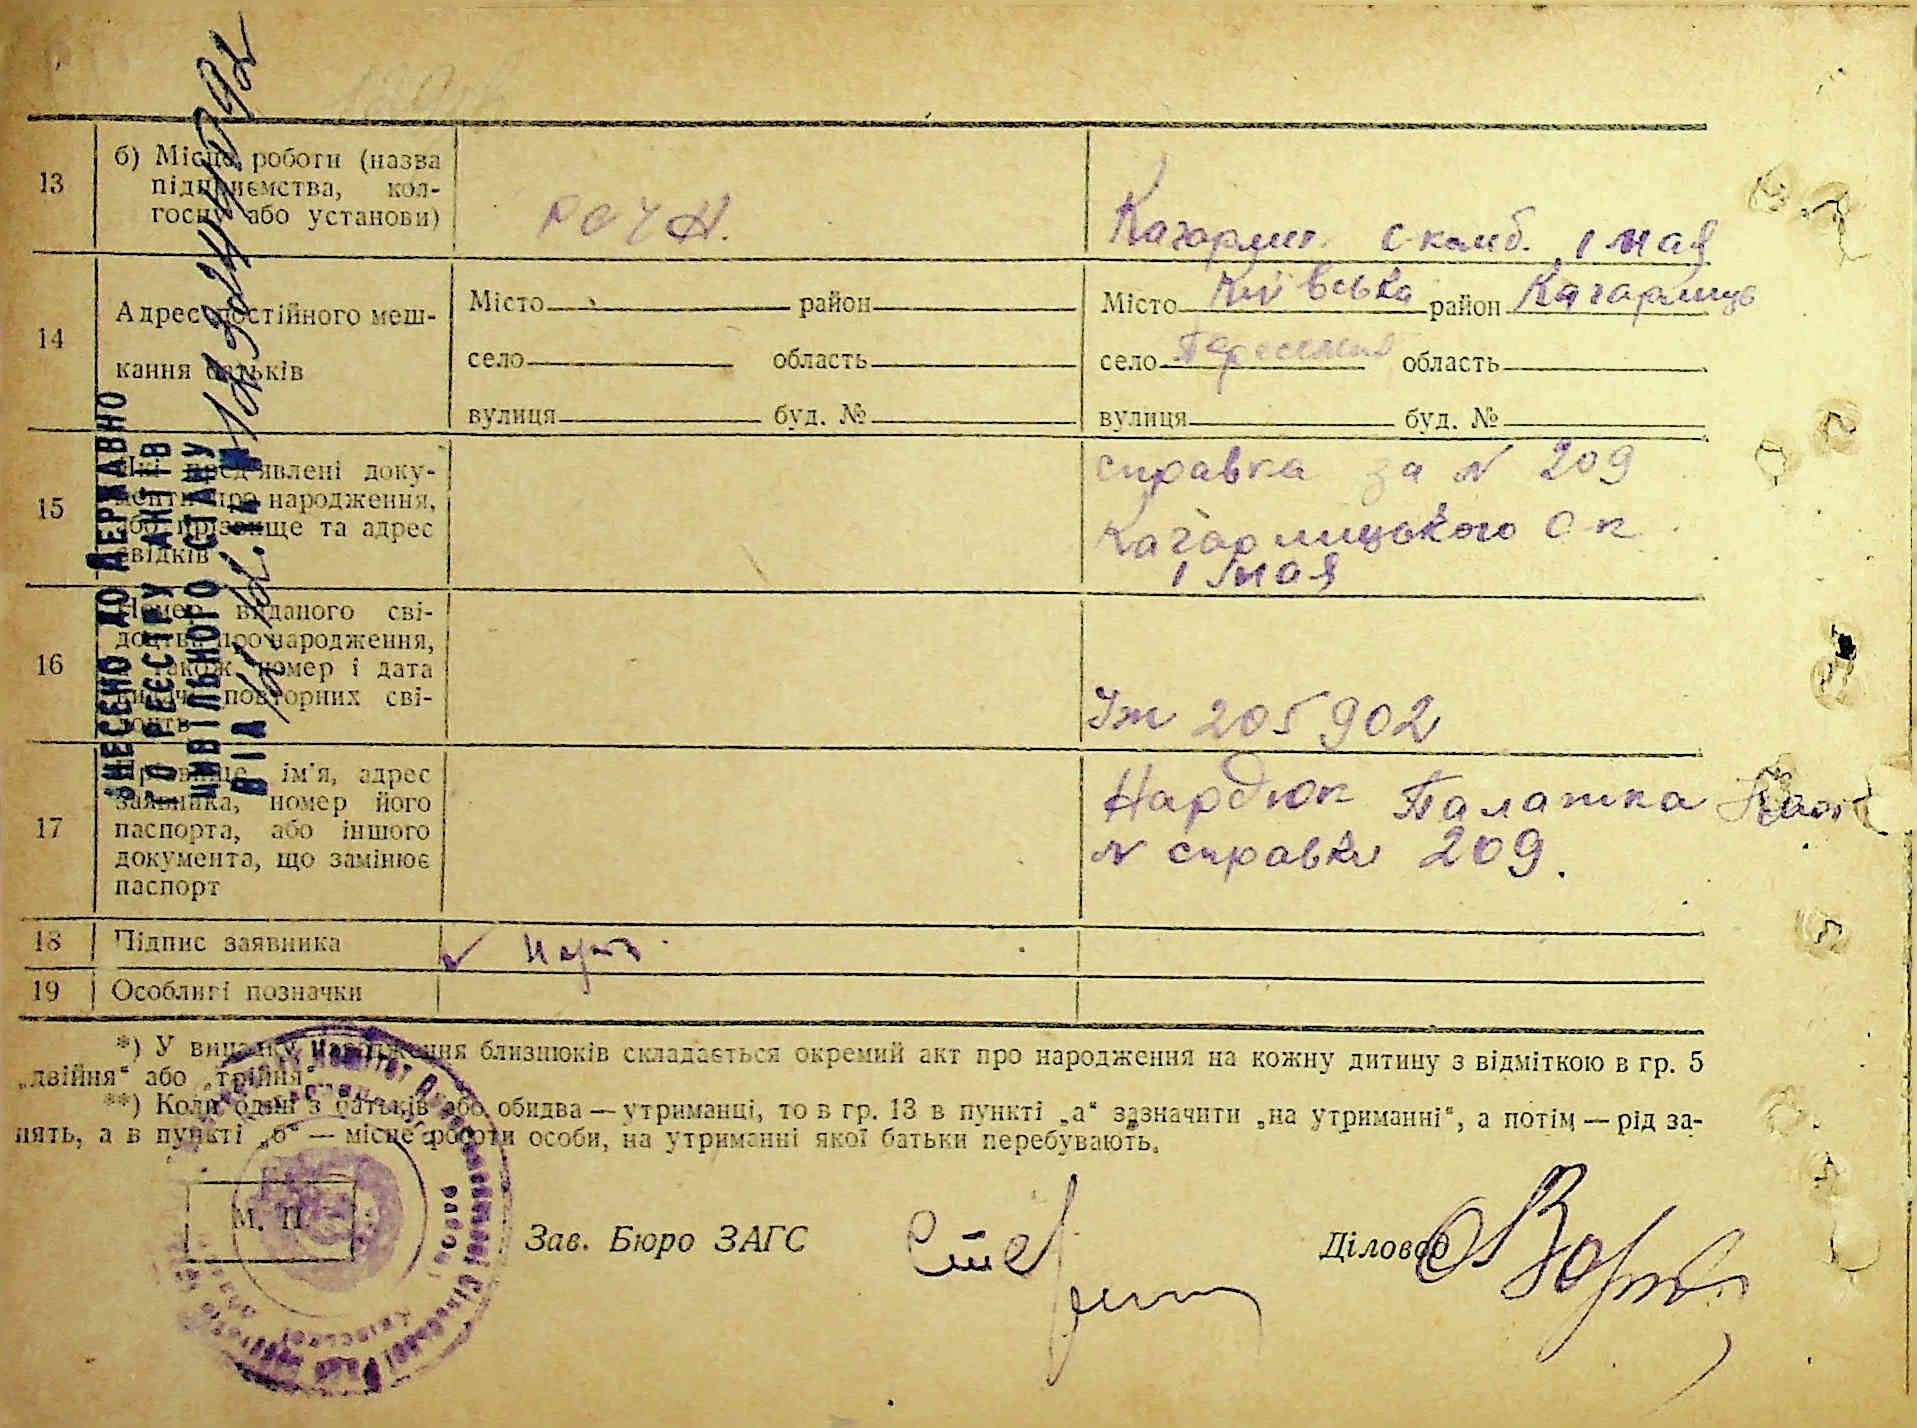 13
б) Місце роботи (назва
підприємства, кол-
госпу або установи)
РСЧН.
Кагарлиц. с-комб. 1 мая
14
Адрес постійного меш-
кання батьків
Місто район
село область
вулиця буд. №
Місто Київська район Кагарлиць
село область
вулиця буд. №
15
Які пред'явлені доку-
менти про народження,
або прізвище та адрес
свідків
справка за N 209
Кагарлицького С-к
1 мая
16
Номер виданого сві-
доцтва про народження,
а також номер і дата
видачі повторних сві-
доцтв
205902
17
Прізвище, ім'я, адрес
заявника, номер його
паспорта, або іншого
документа, що замінює
паспорт
Нардюк Палажка
N справки 209.
18
Підпис заявника
19
Особливі позначки
ВНЕСЕНО ДО ДЕРЖАВНО
ГО РЕЄСТРУ АКТІВ
ЦИВІЛЬНОГО СТАНУ
ВІД
*) У випадку народження близнюків складається окремий акт про народження на кожну дитину з відміткою в гр. 5
„двійня“ або „трійня“
**) Коли один з батьків або обидва — утриманці, то в гр. 13 в пункті „а“ зазначити „на утриманні“, а потім — рід за-
нять, а в пункті „б“ — місце роботи особи, на утриманні якої батьки перебувають.
М. П.
Зав. Бюро ЗАГС
Діловод